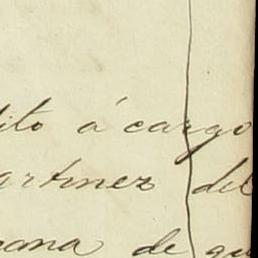 ito á cargo
artinez del
mana de qu